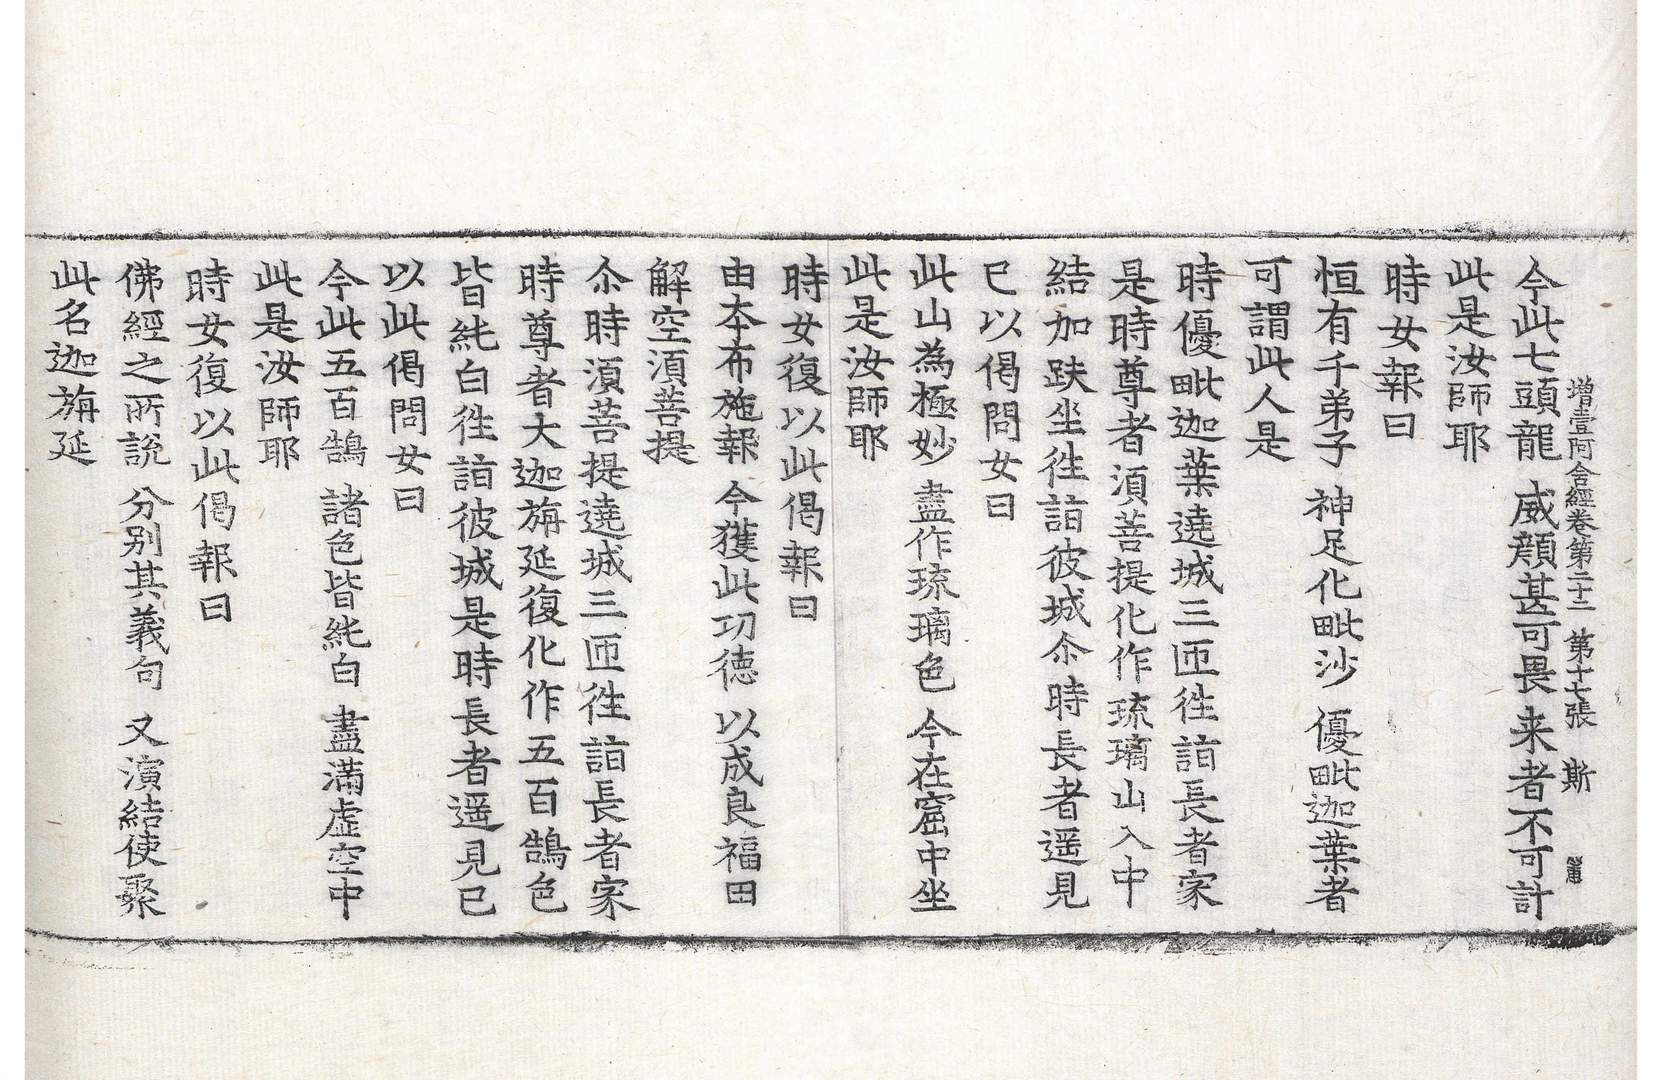 增壹阿含經卷第二十二 第十七張 斯
今此七頭龍 威顏甚可畏 来者不可計
此是汝師耶
時女報曰
恒有千弟子 神足化毗沙 優毗迦葉者
可謂此人是
時優毗迦葉遶城三匝徃詣長者家
是時尊者湏菩提化作琉璃山入中
結加趺坐徃詣彼城尒時長者遥見
已以偈問女曰
此山為極妙 盡作琉璃色 今在窟中坐
此是汝師耶
時女復以此偈報曰
由夲布施報 今獲此功德 以成良福田
解空湏菩提
尒時湏菩提遶城三匝徃詣長者家
時尊者大迦旃延復化作五百鵠色
皆純白徃詣彼城是時長者遥見已
以此偈問女曰
今此五百鵠 諸色皆純白 盡滿虛空中
此是汝師耶
時女復以此偈報曰
佛經之所說 分別其義句 又演結使聚
此名迦旃延